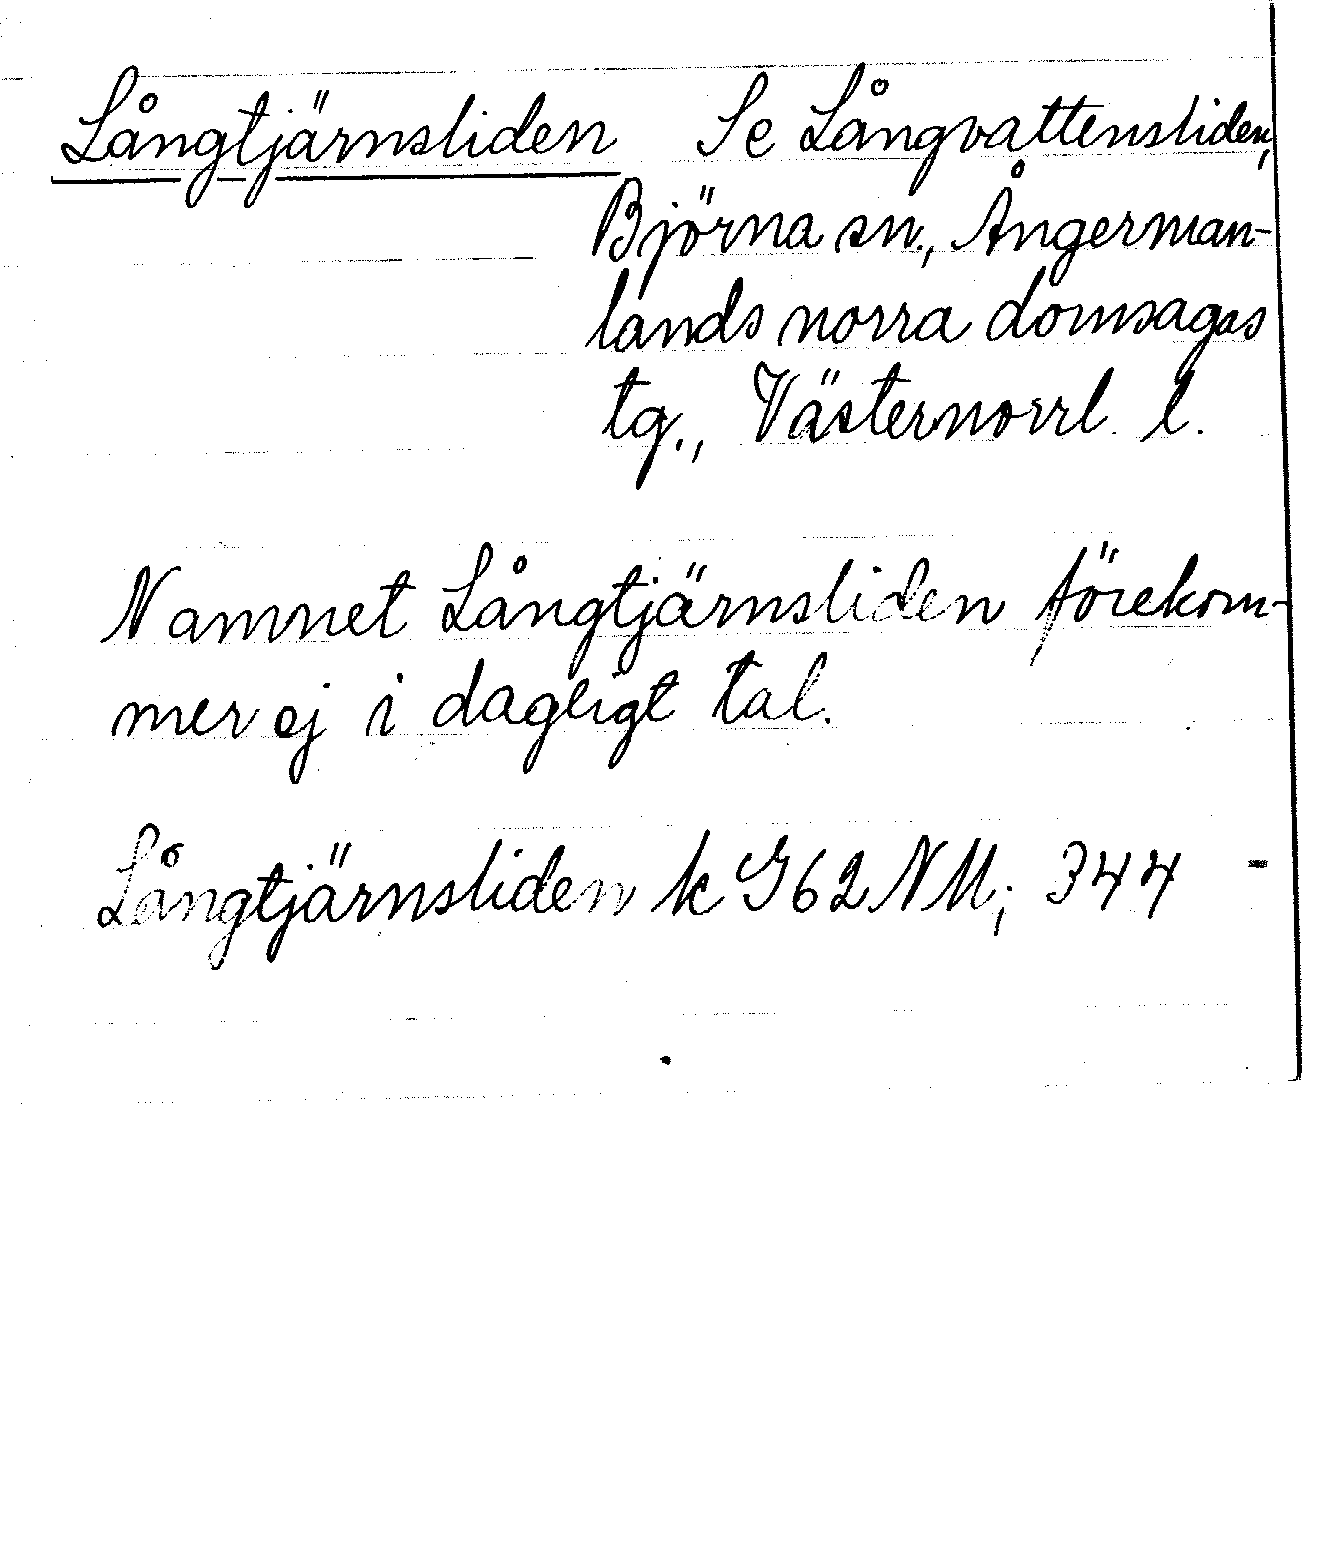 Långtjärnsliden Se Långvattensliden,
Björna sn., Ångerman-
lands norra domsagas
tg., Västernorrl. l.
Namnet Långtjärnsliden förekom-
mer ej i dagligt tal.
Långtjärnsliden k G62NM; 344 -